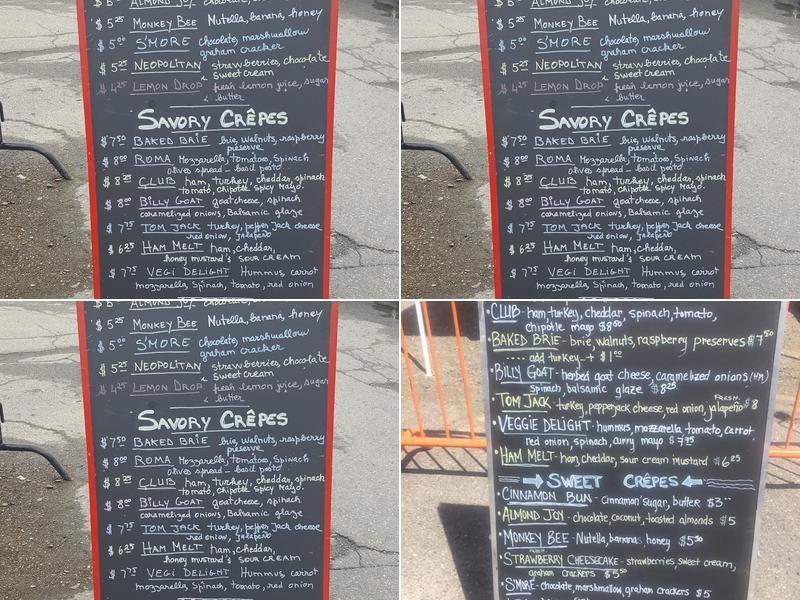 ALMOND JOY
$5.25 MONKEY BEE Nutella, banana, honey
$5.00 S'MORE chocolate, marshmallow
graham cracker
$5.25 NEOPOLITAN strawberries, chocolate
sweet cream
$4.25 LEMON DROP fresh lemon juice, sugar
& butter
SAVORY CRÊPES
$7.50 BAKED BRIE brie, walnuts, raspberry
preserve
$8.00 ROMA Mozzarella, tomatoes, Spinach
olives spread - basil pesto
$8.25 CLUB ham, turkey, cheddar, spinach
tomato, chipotle spicy Mayo.
$8.00 BILLY GOAT goat cheese, spinach
caramelized onions, Balsamic glaze
$7.75 TOM JACK turkey, pepper Jack cheese
red onion, jalapeño
$6.25 HAM MELT ham, cheddar,
honey mustard & SOUR CREAM
$7.75 VEGI DELIGHT Hummus, carrot
mozzarella, Spinach, tomato, red onion
ALMOND JOY
$5.25 MONKEY BEE Nutella, banana, honey
$5.00 S'MORE chocolate, marshmallow
graham cracker
$5.25 NEOPOLITAN strawberries, chocolate
sweet cream
$4.25 LEMON DROP fresh lemon juice, sugar
& butter
SAVORY CRÊPES
$7.50 BAKED BRIE brie, walnuts, raspberry
preserve
$8.00 ROMA Mozzarella, tomatoes, Spinach
olives spread - basil pesto
$8.25 CLUB ham, turkey, cheddar, spinach
tomato, chipotle spicy Mayo.
$8.00 BILLY GOAT goat cheese, spinach
caramelized onions, Balsamic glaze
$7.75 TOM JACK turkey, pepper Jack cheese
red onion, jalapeño
$6.25 HAM MELT ham, cheddar,
honey mustard & SOUR CREAM
$7.75 VEGI DELIGHT Hummus, carrot
mozzarella, Spinach, tomato, red onion
ALMOND JOY
$5.25 MONKEY BEE Nutella, banana, honey
$5.00 S'MORE chocolate, marshmallow
graham cracker
$5.25 NEOPOLITAN strawberries, chocolate
sweet cream
$4.25 LEMON DROP fresh lemon juice, sugar
& butter
SAVORY CRÊPES
$7.50 BAKED BRIE brie, walnuts, raspberry
preserve
$8.00 ROMA Mozzarella, tomatoes, Spinach
olives spread - basil pesto
$8.25 CLUB ham, turkey, cheddar, spinach
tomato, chipotle spicy Mayo.
$8.00 BILLY GOAT goat cheese, spinach
caramelized onions, Balsamic glaze
$7.75 TOM JACK turkey, pepper Jack cheese
red onion, jalapeño
$6.25 HAM MELT ham, cheddar,
honey mustard & SOUR CREAM
$7.75 VEGI DELIGHT Hummus, carrot
mozzarella, Spinach, tomato, red onion
• CLUB - ham, turkey, cheddar, spinach, tomato,
chipotle mayo $8.50
• BAKED BRIE - brie, walnuts, raspberry preserves $7.50
---- add turkey - + $1.00
• BILLY GOAT - herbed goat cheese, caramelized onions (HM)
spinach, balsamic glaze $8.25
• TOM JACK - turkey, pepperjack cheese, red onion, FRESH jalapeño $8
• VEGGIE DELIGHT - hummus, mozzarella, tomato, carrot
red onion, spinach, curry mayo $7.75
• HAM MELT - ham, cheddar, sour cream mustard $6.25
SWEET CRÊPES
• CINNAMON BUN - Cinnamon sugar, butter $3
• ALMOND JOY - chocolate, coconut, toasted almonds $5
• MONKEY BEE - Nutella, bananas, honey $5.50
• STRAWBERRY CHEESECAKE - strawberries, sweet cream,
graham crackers $5.50
• S'MORE - chocolate, marshmallow, graham crackers $5